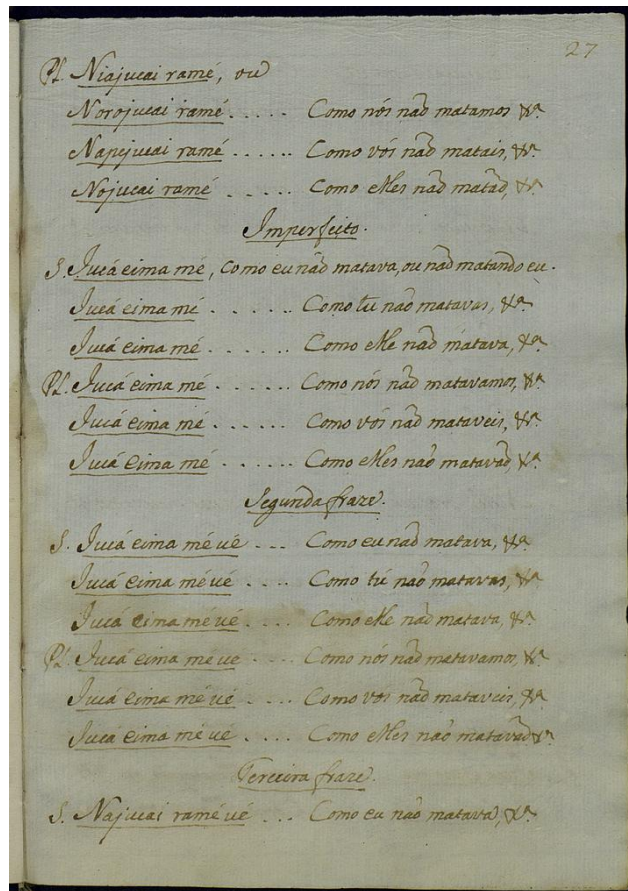 27
Pl. Niajucai ramé, ou
Norojucai ramé..... Como nós naõ matamos &ª.
Napejucai ramé...... Como vós naõ matais, &ª.
Nojucai ramé ..... Como elles naõ mataõ, &ª.
Imperfeito.
S. Jucá eima mé, como eu naõ matava, ou naõ matando eu.
Jucá eima mé ....... Como tu naõ matavas, &ª.
Jucá eima mé ...... Como elle naõ matava, &ª.
Pl. Jucá eima mé ...... Como nós naõ matavamos, &ª.
Jucá eima mé ...... Como vós naõ mataveis, &ª.
Jucá eima mé ...... Como elles naõ matavaõ, &ª.
Segunda fraze.
S. Jucá eima mé ué ... Como eu naõ matava, &ª.
Jucá eima mé ué .... Como tú naõ matavas, &ª
Jucá eima mé ué .... Como elle naõ matava, &ª.
Pl. Jucá eima me ue .... Como nós naõ matavamos, &ª.
Jucá eima mé ué .... Como vos naõ mataveis, &ª
Jucá eima me ué .... Como elles naõ matavaõ &ª.
Terceira fraze.
S. Najucai ramé ué ... Como eu naõ matava, &ª.